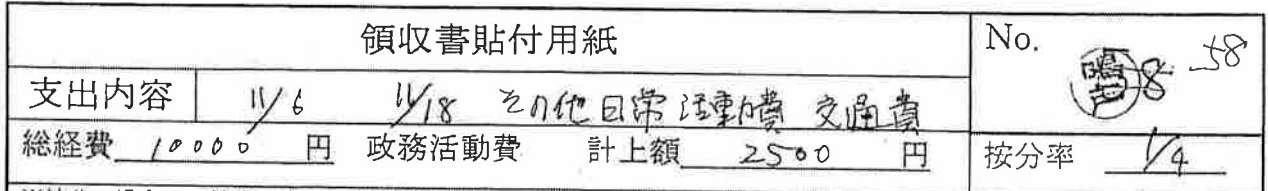 領収書貼付用紙
No. 鳴戸 8 58
支出内容 11/6 11/18 その他日常活動費 交通費
総経費 10000 円 政務活動費 計上額 2500 円 按分率 1/4